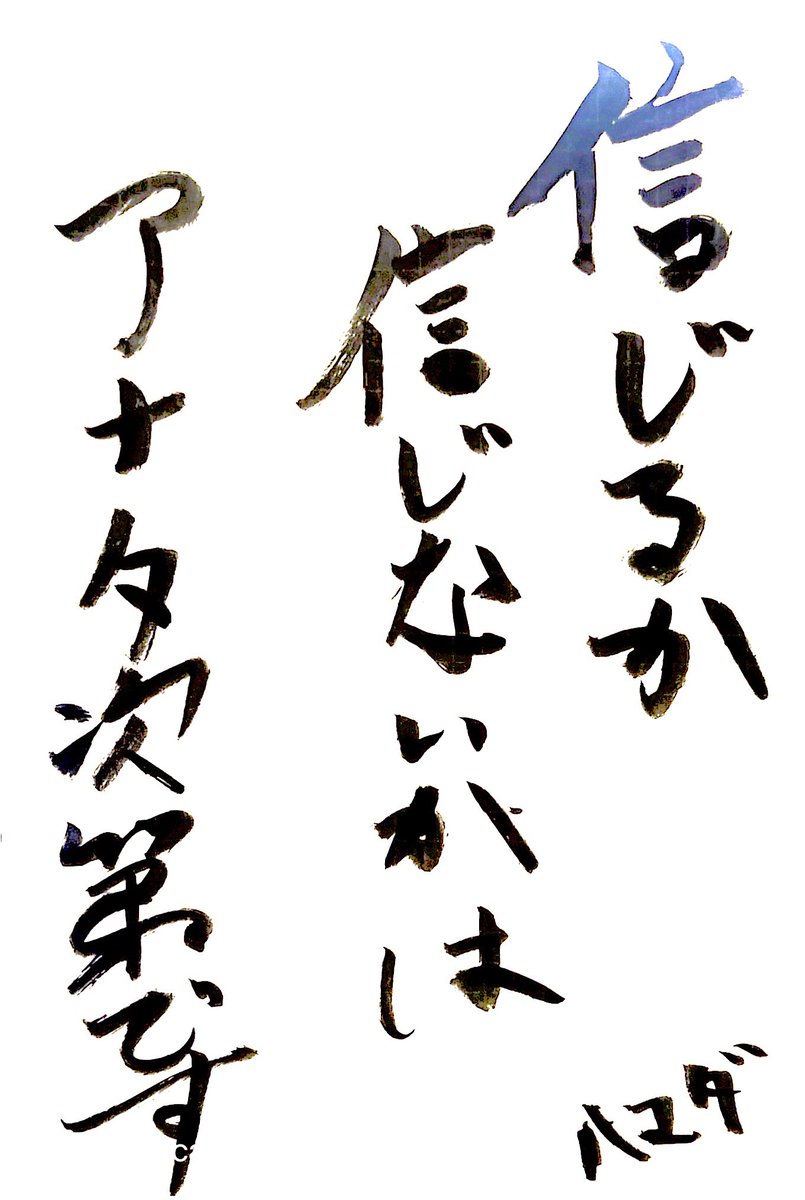 信じるか
信じないかは
アナタ次第です